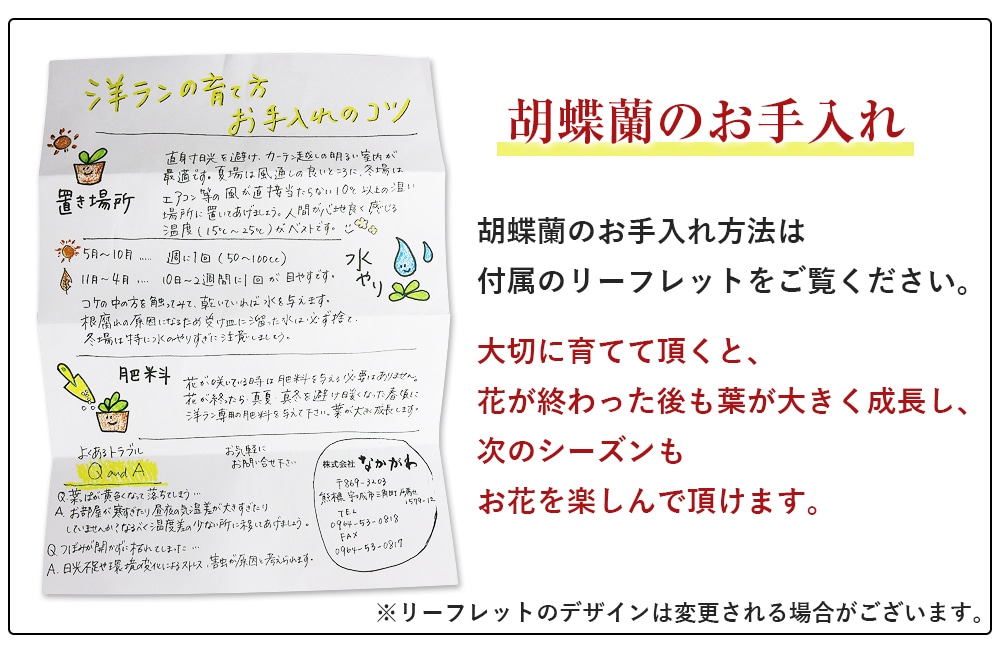 洋ランの育て方
お手入れのコツ
置き場所
直射日光を避け、カーテン越しの明るい室内が
最適です。夏場は風通しの良いところに、冬場は
エアコン等の風が直接当たらない10℃以上の温い
場所に置いてあげましょう。人間が心地良く感じる
温度(15℃~25℃)がベストです。
水やり
5月~10月 ..... 週に1回(50~100cc)
11月~4月 ..... 10日~2週間に1回が目やすです。
コケの中の方を触ってみて、乾いていれば水を与えます。
根腐れの原因になるため受け皿に溜った水は必ず捨て、
冬場は特に水のやりすぎに注意しましょう。
肥料
花が咲いている時は肥料を与える必要はありません。
花が終ったら、真夏・真冬を避け暖くなった春頃に
洋ラン専用の肥料を与えて下さい。葉が大きく成長します。
よくあるトラブル
Q and A
お気軽に
お問い合せ下さい
Q. 葉っぱが黄色くなって落ちてしまう…
A. お部屋が寒すぎたり昼夜の気温差が大きすぎたり
していませんか?なるべく温度差の少ない所に移してあげましょう。
Q. つぼみが開かずに枯れてしまった…
A. 日光不足や環境の変化によるストレス、害虫が原因と考えられます。
株式会社 なかがわ
〒869-3203
熊本県宇城市三角町
1579-12
TEL
0964-53-0818
FAX
0964-53-0817
胡蝶蘭のお手入れ
胡蝶蘭のお手入れ方法は
付属のリーフレットをご覧ください。
大切に育てて頂くと、
花が終わった後も葉が大きく成長し、
次のシーズンも
お花を楽しんで頂けます。
※リーフレットのデザインは変更される場合がございます。